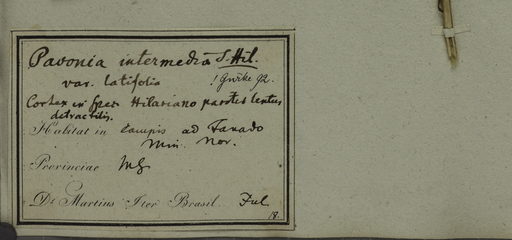 Pavonia intermedia S. Hil.
var. latifolia ! Gürke 92.
Cortex in Hilariano
detractilis.
Habitat in campis ad Fanado
Min. Nov.
Provinciae MG
Dr. Martius Iter Brasil. Jul.
18.